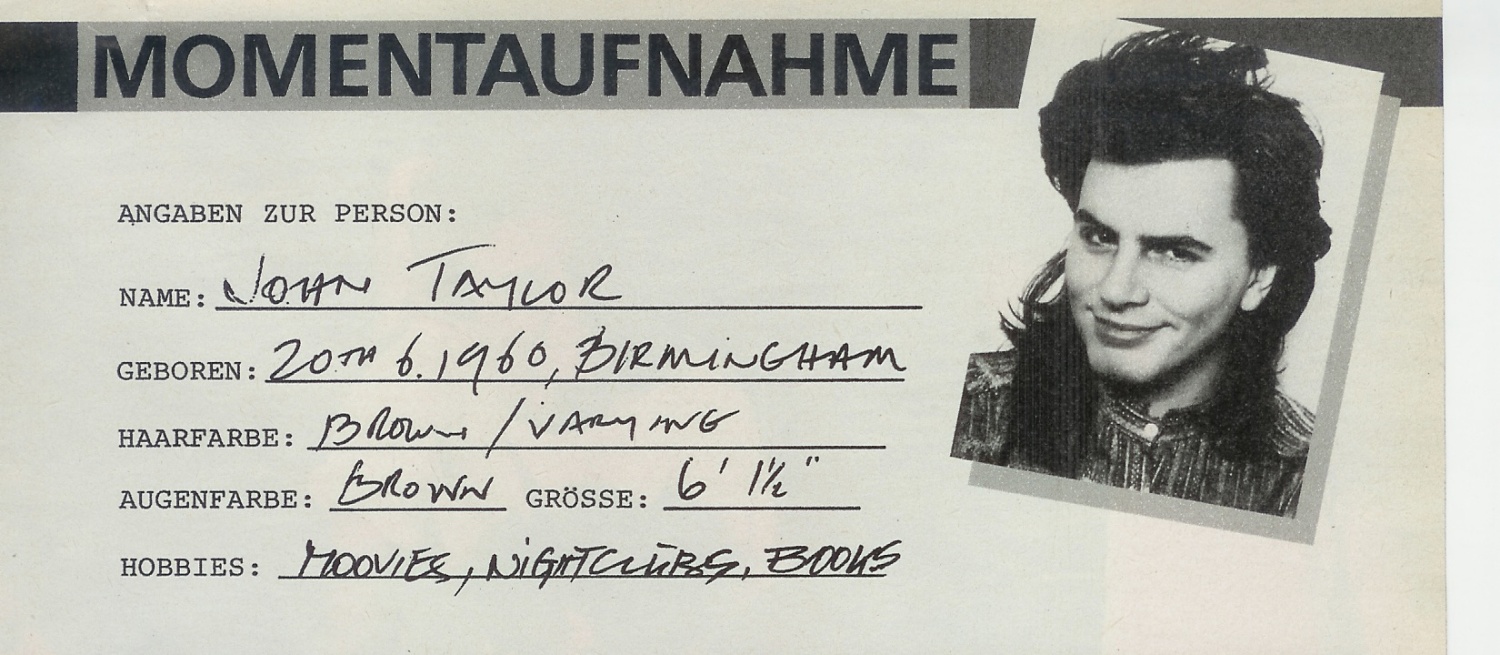 MOMENTAUFNAHME
ANGABEN ZUR PERSON:
NAME: JOHN TAYLOR
GEBOREN: 20TH 6.1960, BIRMINGHAM
HAARFARBE: BROWN / VARYING
AUGENFARBE: BROWN GRÖSSE: 6' 1½"
HOBBIES: MOOVIES, NIGHTCLUBS, BOOKS